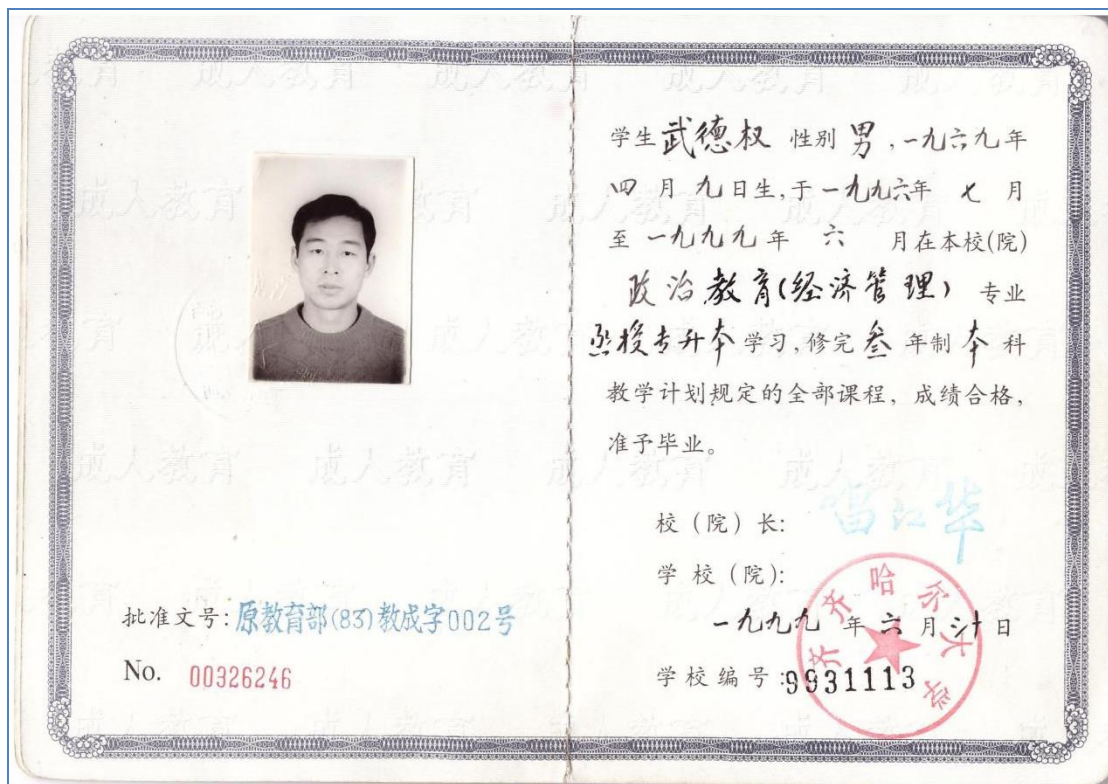 批准文号:原教育部(83)教成字002号
No. 00326246
学生 武德权 性别 男,一九六九年
四 月 九日生,于一九九六年 七 月
至 一九九九 年 六 月在本校(院)
政治教育(经济管理) 专业
函授专升本 学习,修完 叁 年制 本 科
教学计划规定的全部课程,成绩合格,
准予毕业。
校(院)长:
学校(院):
齐齐哈尔大学
一九九九 年 六 月 卅 日
学校编号:9931113
成人教育